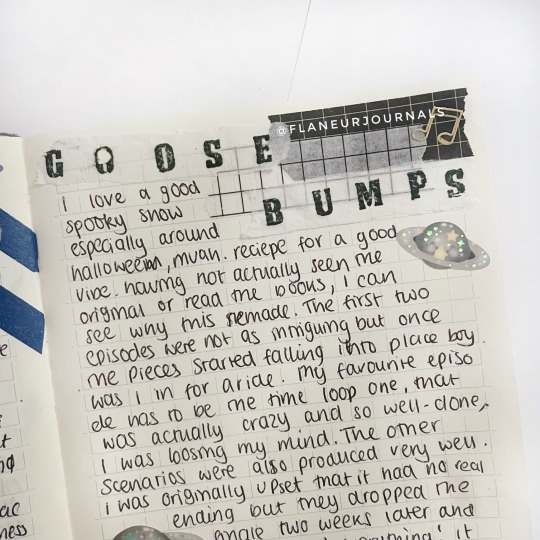 @FLANEURJOURNALS
GOOSE
BUMPS
i love a good
spooky show
especially around
halloween, mvah. reciepe for a good
vibe. having not actually seen the
original or read the books, i can
see why this remade. The first two
episodes were not as intriguing but once
the pieces started falling into place boy
was i in for a ride. my favourite episo
de has to be the time loop one, that
was actually crazy and so well-done,
i was loosing my mind. The other
scenarios were also produced very well.
i was originally upset that it had no real
ending but they dropped the
finale two weeks later and
everything! it
e
t
ac
ness